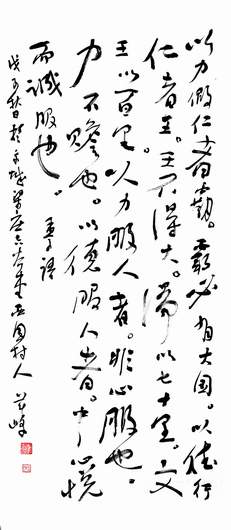 以力假仁者霸。霸必有大国。以德行
仁者王。王不待大。湯以七十里。文
王以百里。以力服人者。非心服也。
力不赡也。以德服人者。中心悦
而诚服也。孟语
戊子秋日於京城 西园村人 峰